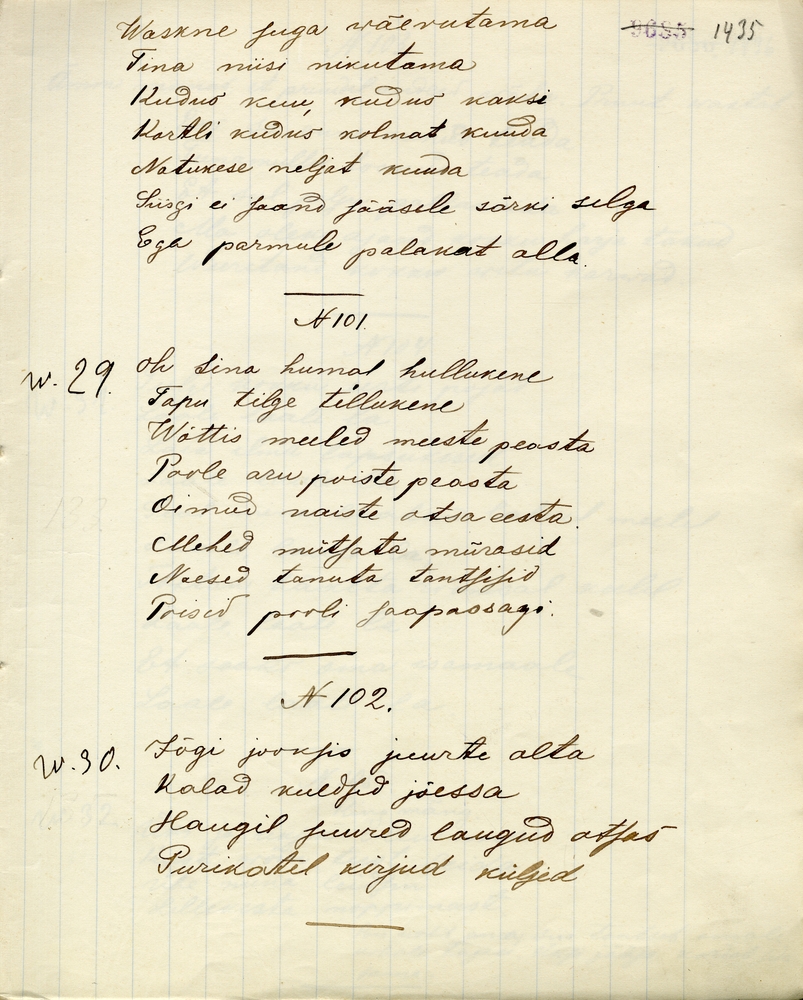 Waskne suga wäerutama 9685 1435
Tina niisi nikutama
Kudus kuu, kudus kaksi
Kartli kudus kolmat kuuda
Natukese neljat kuuda
Siisgi ei saand sääsele särki selga
Ega parmule palakat alla.
N 101.
w. 29. Oh sina humal hullukene
Tapu tilge tillukene
Wõttis meeled meeste peasta
Poole aru poiste peasta
Oimud naiste otsa eesta.
Mehed mütsata mürasid
Naesed tanuta tantsisid
Poisid pooli saapaosagi.
N 102.
w. 30. Jõgi jooksis juurte alta
Kalad kuldsed jõessa
Haugil suured laugud otsas
Purikatel kirjud küljed